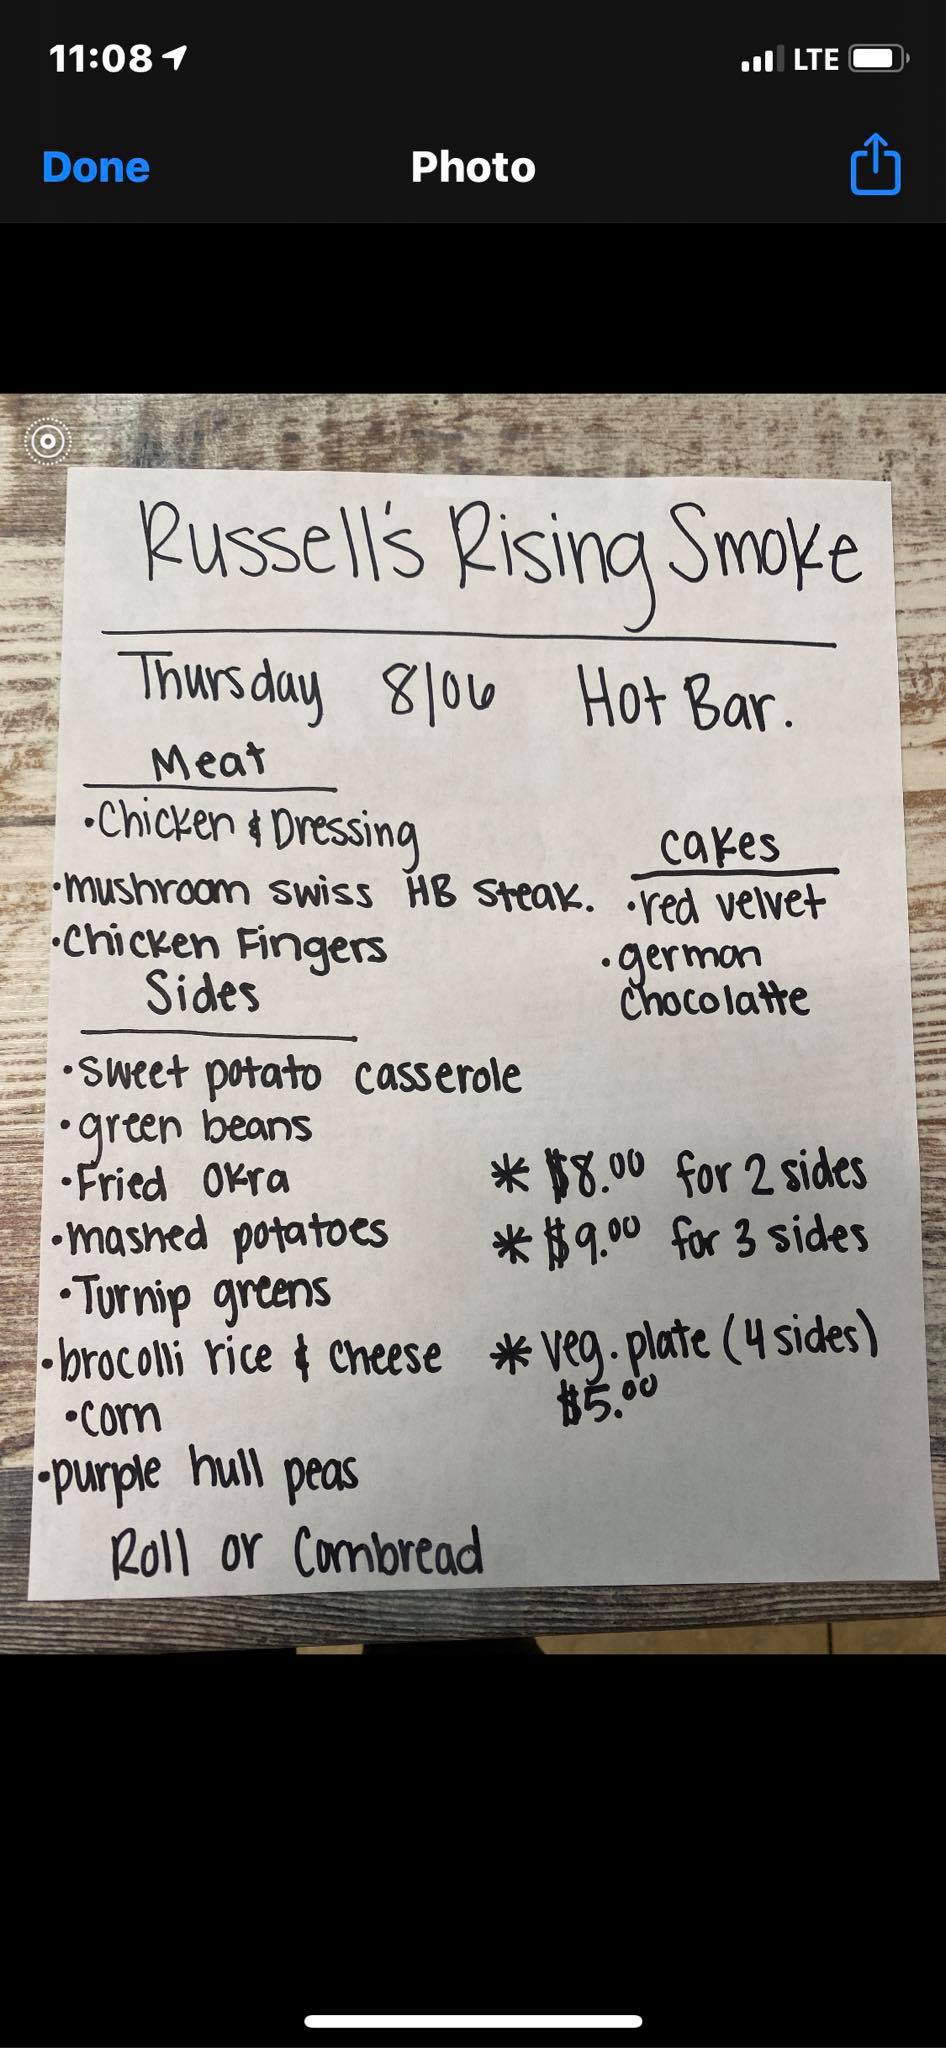 11:08
LTE
Done
Photo
Russell's Rising Smoke
Thursday 8/06 Hot Bar.
Meat
•Chicken & Dressing
•mushroom swiss HB steak.
•Chicken Fingers
cakes
•red velvet
•german
chocolatte
Sides
•sweet potato casserole
•green beans
•Fried Okra
•mashed potatoes
•Turnip greens
•brocolli rice & cheese
•corn
•purple hull peas
Roll or Cornbread
* $8.00 for 2 sides
* $9.00 for 3 sides
* veg. plate (4 sides)
$5.00